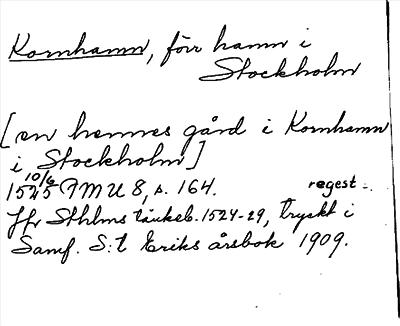 Kornhamn, förr hamn i
Stockholm
[en hennes gård i Kornhamn
i Stockholm]
10/6
1545 FMU 8, s. 164. regest.
Jfr Sthlms tänkeb. 1524-29, tryckt i
Samf. S:t Eriks årsbok 1909.